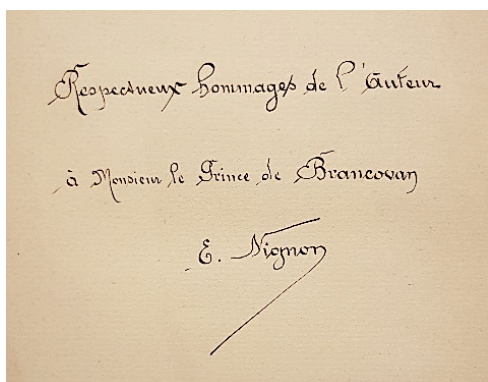 Respectueux hommages de l'Auteur
à Monsieur le Prince de Brancovan
E. Nignon